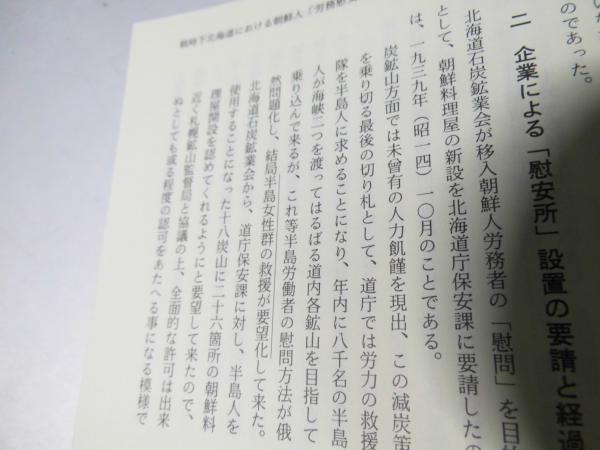 戦時下北海道における朝鮮人「労務慰
のであった。
二　企業による「慰安所」設置の要請と経過
北海道石炭鉱業会が移入朝鮮人労務者の「慰問」を目
として、朝鮮料理屋の新設を北海道庁保安課に要請したの
は、一九三九年（昭一四）一〇月のことである。
炭鉱山方面では未曾有の人力飢饉を現出、この減炭策
を乗り切る最後の切り札として、道庁では労力の救援
隊を半島人に求めることになり、年内に八千名の半島
人が海峡二つを渡ってはるばる道内各鉱山を目指して
乗り込んで来るが、これ等半島労働者の慰問方法が俄
然問題化し、結局半島女性群の救援が要望化して来た。
北海道石炭鉱業会から、道庁保安課に対し、半島人を
使用することになった十八炭山に二十六箇所の朝鮮料
理屋開設を認めてくれるようにと要望して来たので、
近く札幌鉱山監督局と協議の上、全面的な許可は出来
ぬとしても或る程度の認可をあたへる事になる模様で